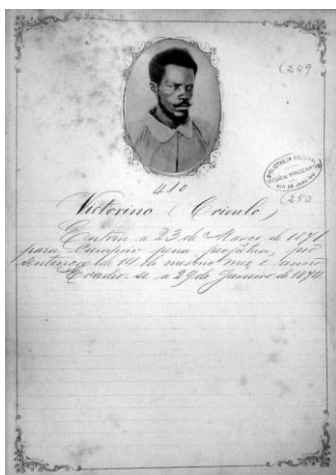 (249
BIBLIOTHECA NACIONAL
RIO DE JANEIRO
410
(250
Victorino (Crioulo)
Entrou a 23 de Março de 1871
para cumprir pena perpétua, por
sentença de 14 do mesmo mez e anno
Evadio-se a 29 de Janeiro de 1874